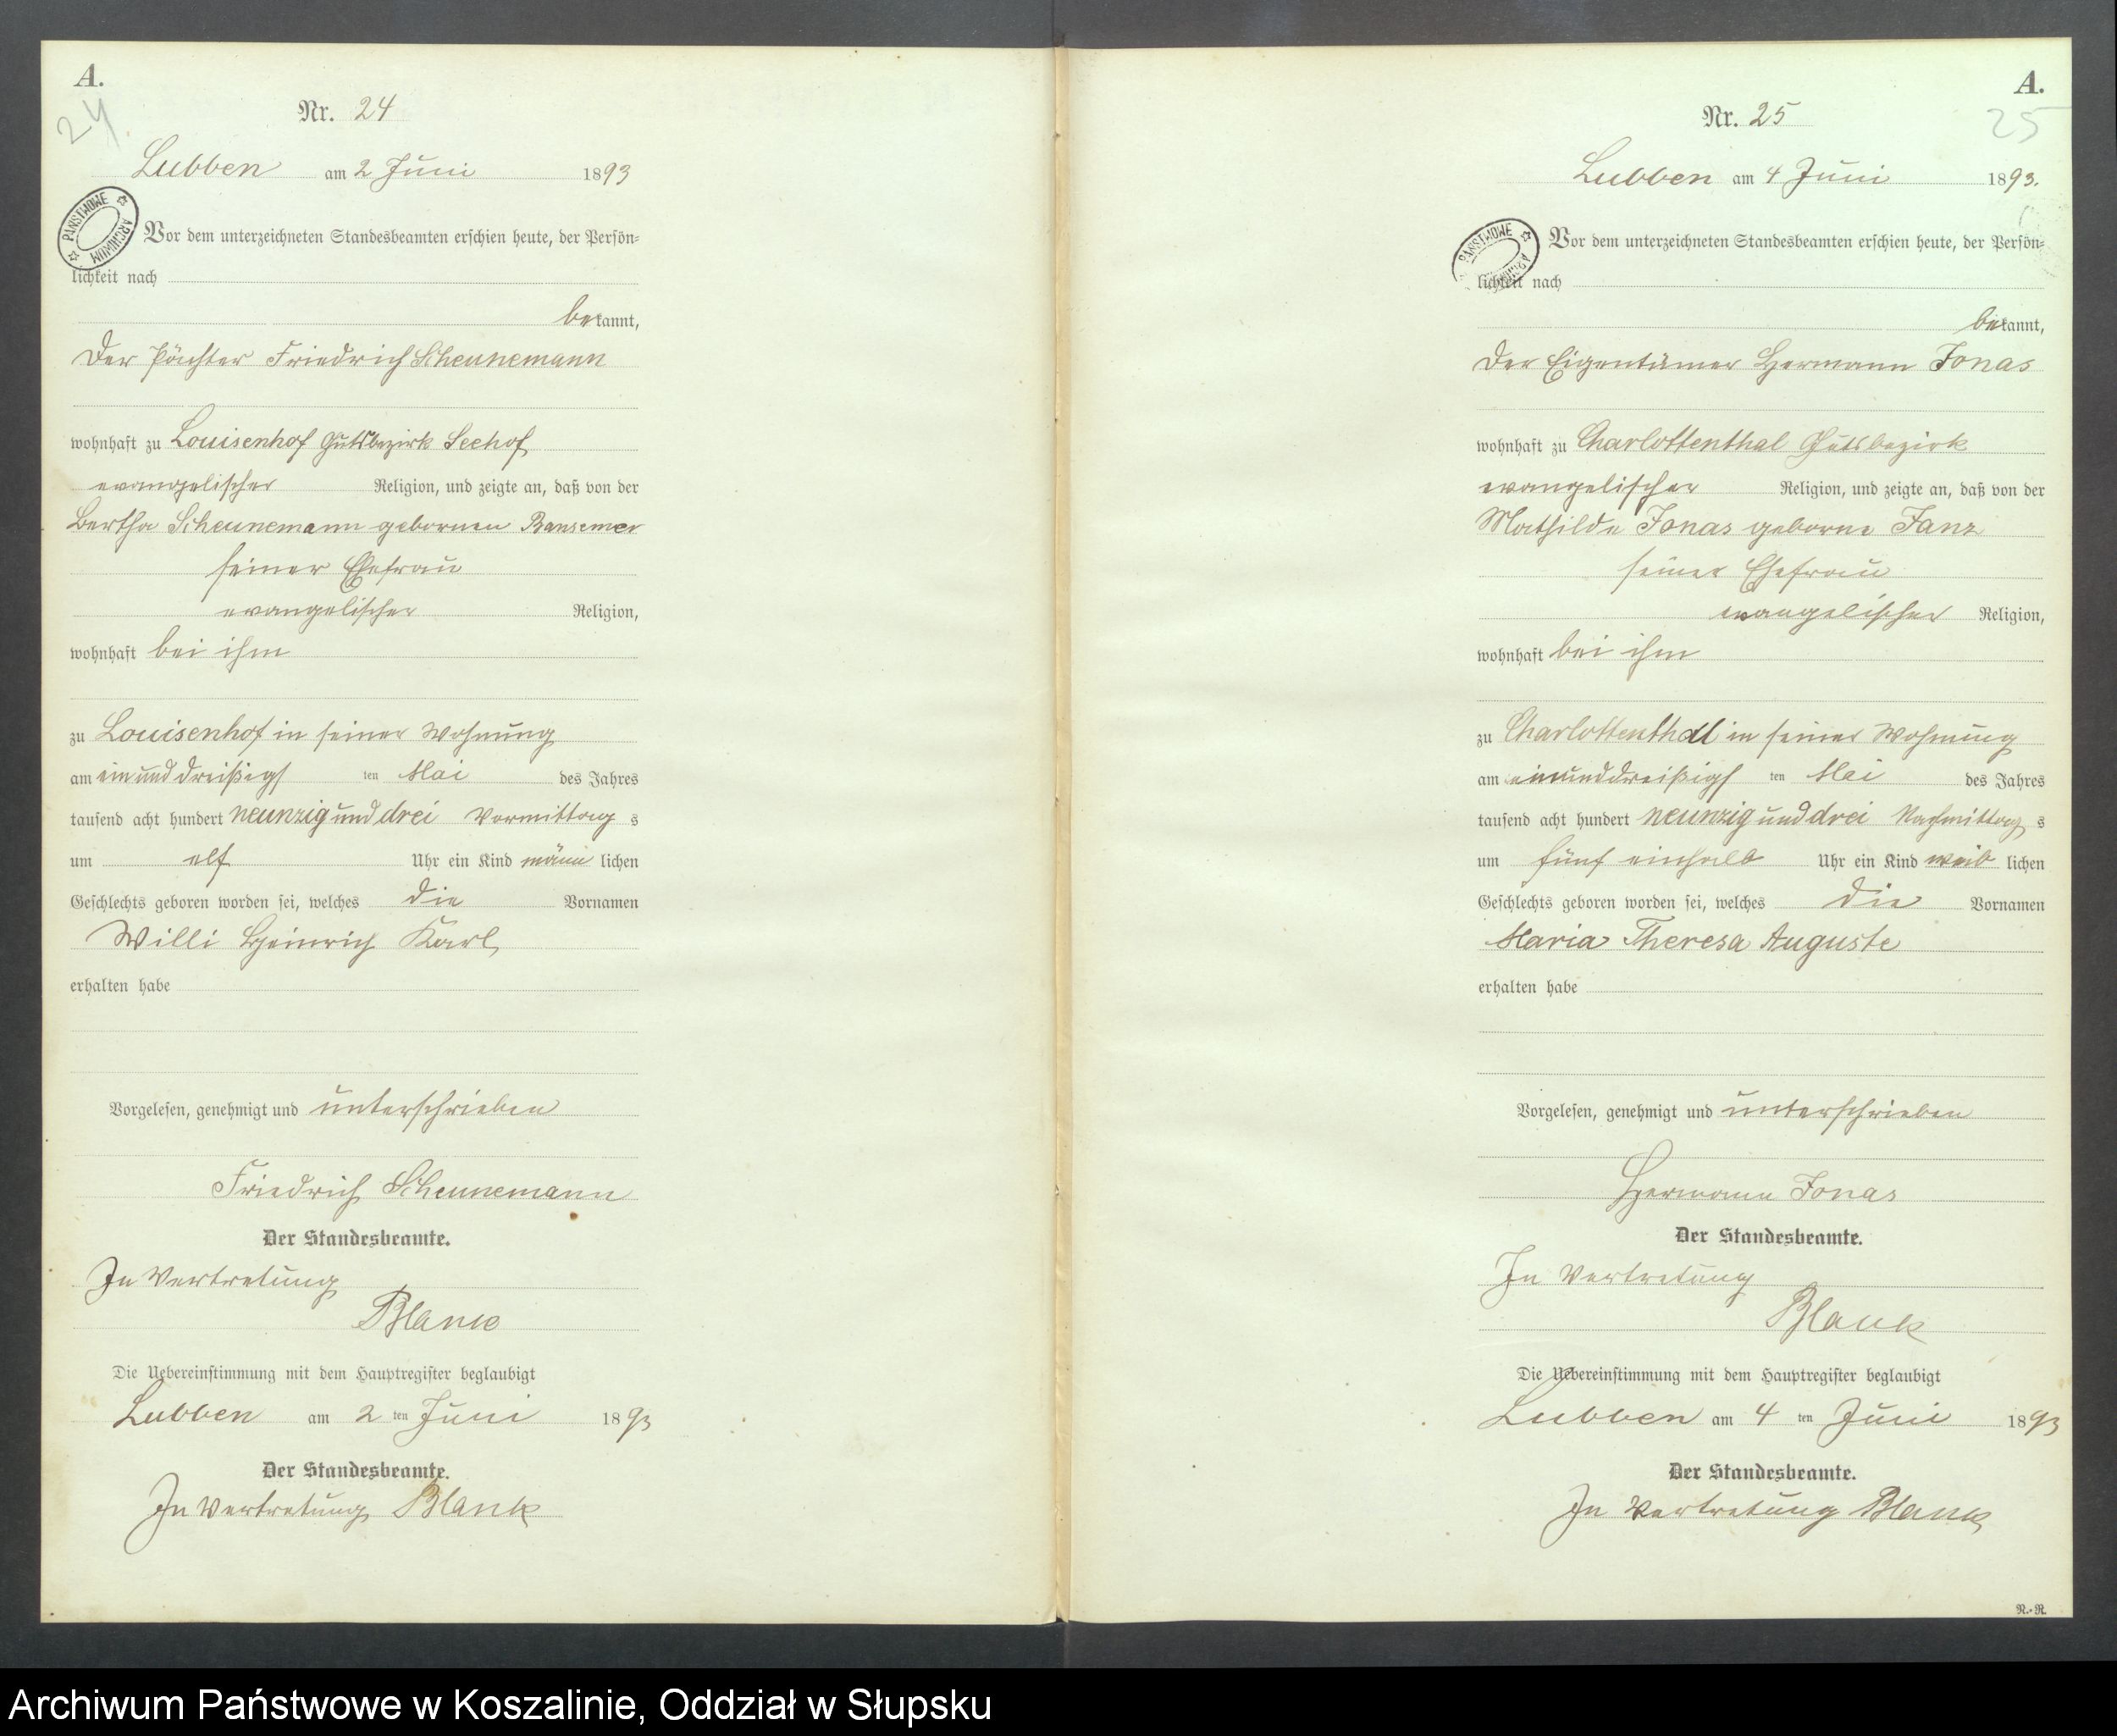 A.
24.
Nr. 24
Lubben am 2 Juni 1893
PAŃSTWOWE ARCHIWUM
Vor dem unterzeichneten Standesbeamten erschien heute, der Persön-
lichkeit nach
bekannt,
der Pächter Friedrich Scheunemann
wohnhaft zu Louisenhof Gutsbezirk Seehof
evangelischer Religion, und zeigte an, daß von der
Bertha Scheunemann gebornen Bansemer
seiner Ehefrau
evangelischer Religion,
wohnhaft bei ihm
zu Louisenhof in seiner Wohnung
am einunddreißigs ten Mai des Jahres
tausend acht hundert neunzig und drei Vormittag s
um elf Uhr ein Kind männ lichen
Geschlechts geboren worden sei, welches die Vornamen
Willi Heinrich Karl
erhalten habe
Vorgelesen, genehmigt und unterschrieben
Friedrich Scheunemann
Der Standesbeamte.
In Vertretung
Blank
Die Uebereinstimmung mit dem Hauptregister beglaubigt
Lubben am 2 ten Juni 1893
Der Standesbeamte.
In Vertretung Blank
A.
25
Nr. 25
Lubben am 4 Juni 1893.
PAŃSTWOWE ARCHIWUM
Vor dem unterzeichneten Standesbeamten erschien heute, der Persön-
lichkeit nach
bekannt,
der Eigentümer Hermann Jonas
wohnhaft zu Charlottenthal Gutsbezirk
evangelischer Religion, und zeigte an, daß von der
Mathilde Jonas geborne Janz
seiner Ehefrau
evangelischer Religion,
wohnhaft bei ihm
zu Charlottenthal in seiner Wohnung
am einunddreißigs ten Mai des Jahres
tausend acht hundert neunzig und drei Nachmittag s
um fünf einhalb Uhr ein Kind weib lichen
Geschlechts geboren worden sei, welches die Vornamen
Maria Theresa Auguste
erhalten habe
Vorgelesen, genehmigt und unterschrieben
Hermann Jonas
Der Standesbeamte.
In Vertretung
Blank
Die Uebereinstimmung mit dem Hauptregister beglaubigt
Lubben am 4 ten Juni 1893
Der Standesbeamte.
In Vertretung Blank
N.-R.
Archiwum Państwowe w Koszalinie, Oddział w Słupsku